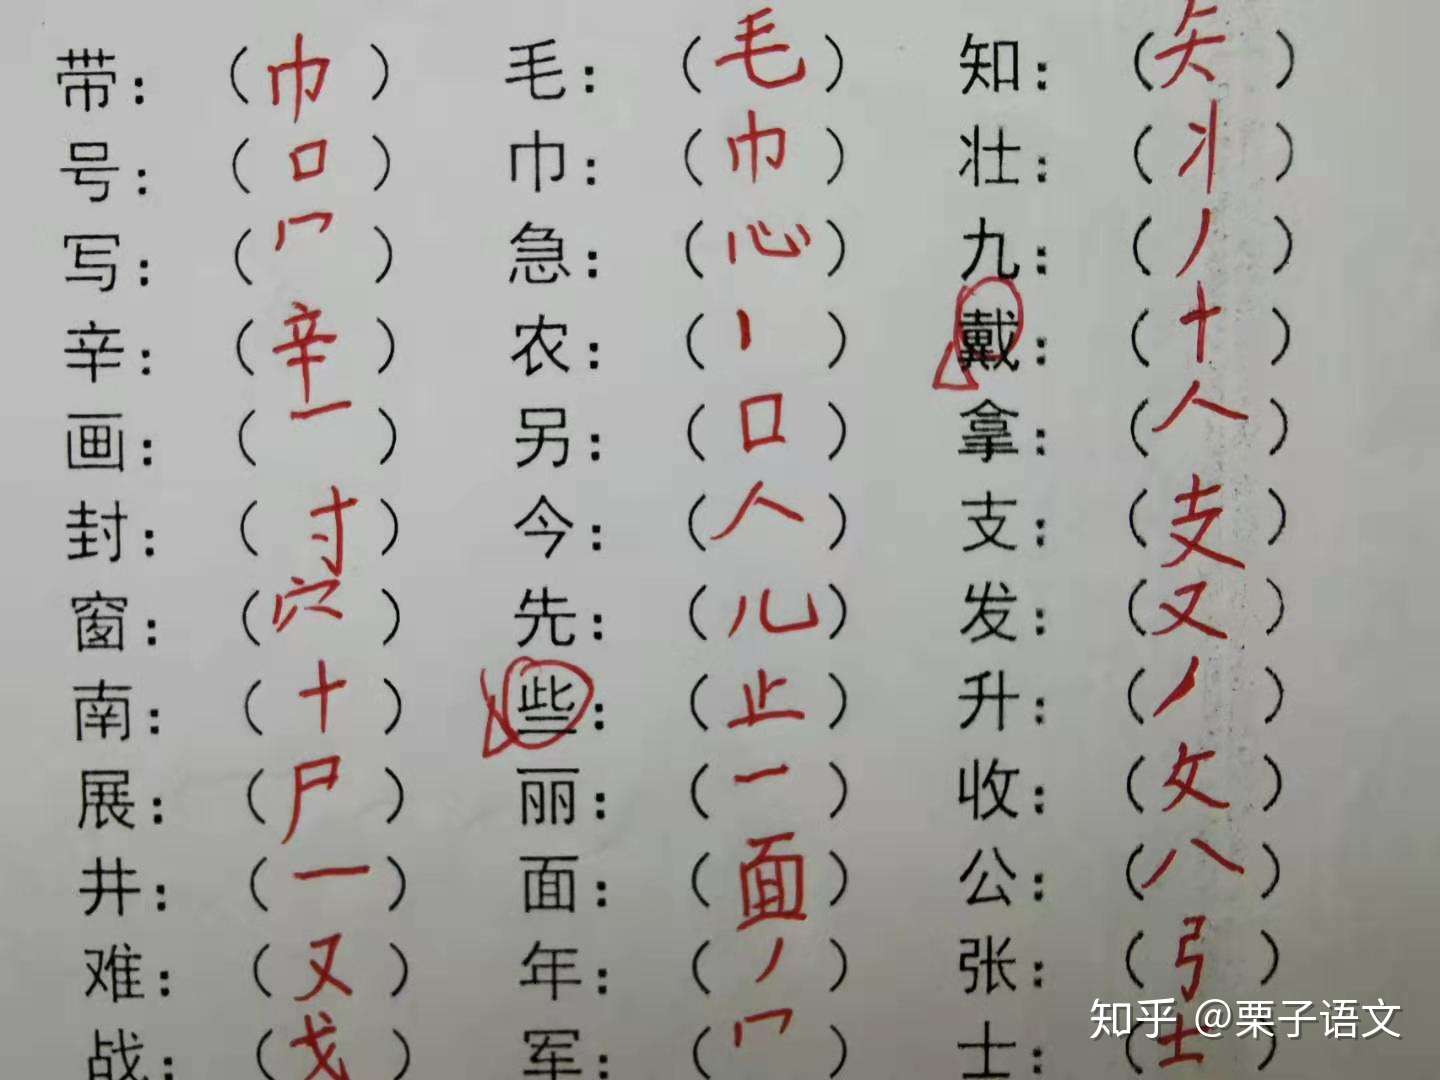 带：（巾） 毛：（毛） 知：（矢）
号：（口） 巾：（巾） 壮：（丬）
写：（冖） 急：（心） 九：（丿）
辛：（辛） 农：（丨） 戴：（十）
画：（一） 另：（口） 拿：（人）
封：（寸） 今：（人） 支：（支）
窗：（穴） 先：（儿） 发：（又）
南：（十） 些：（止） 升：（丿）
展：（尸） 丽：（一） 收：（攵）
井：（一） 面：（面） 公：（八）
难：（又） 年：（丿） 张：（弓）
战：（戈） 军：（冖） 士：（士）
知乎 @栗子语文